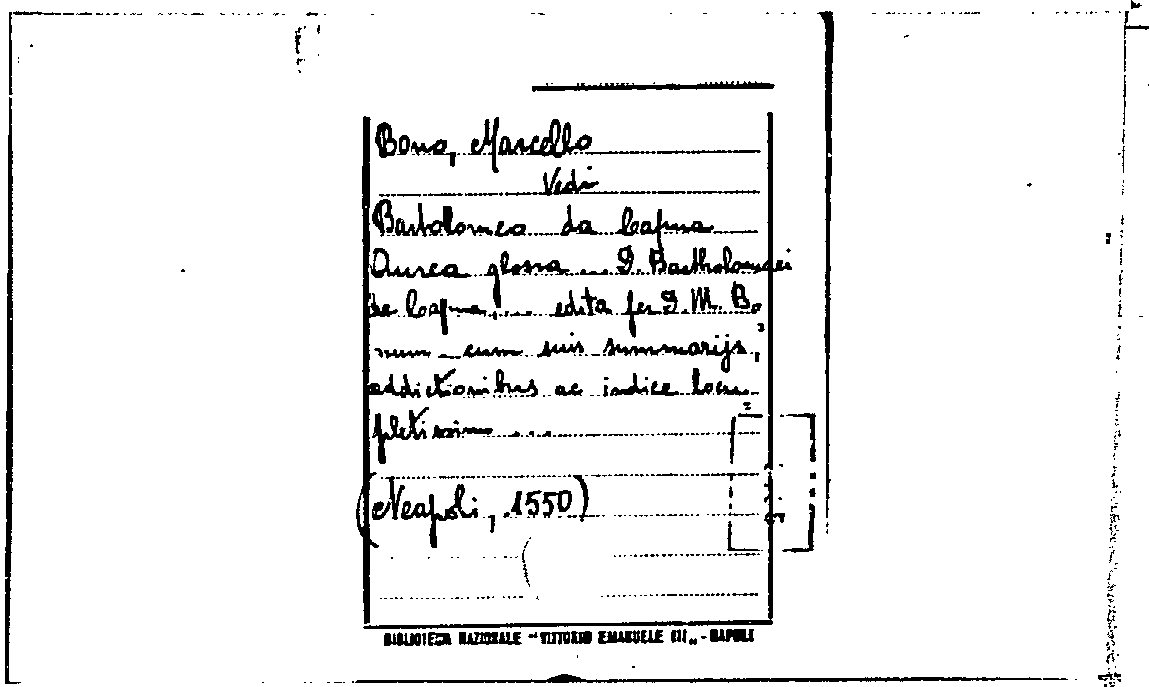 Bono, Marcello
Vedi
Bartolomeo da Capua
Aurea glossa ... D. Bartholomaei
de Capua, ... edita per D. M. Bo
num - cum suis summarijs,
addictionibus ac indice locu
pletissimo ...
(Neapoli, 1550)
BIBLIOTECA NAZIONALE "VITTORIO EMANUELE III" - NAPOLI